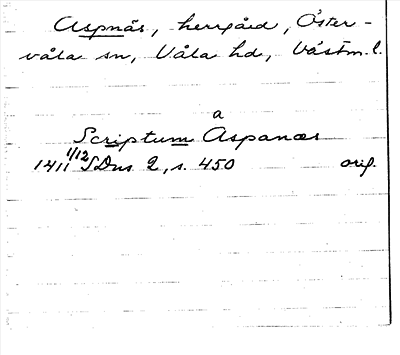 Aspnäs, herrgård, Öster-
våla sn, Våla hd, Västm. l.
a
Scriptum Aspanæs
1411 1/12 SDns 2, s. 450 orig.